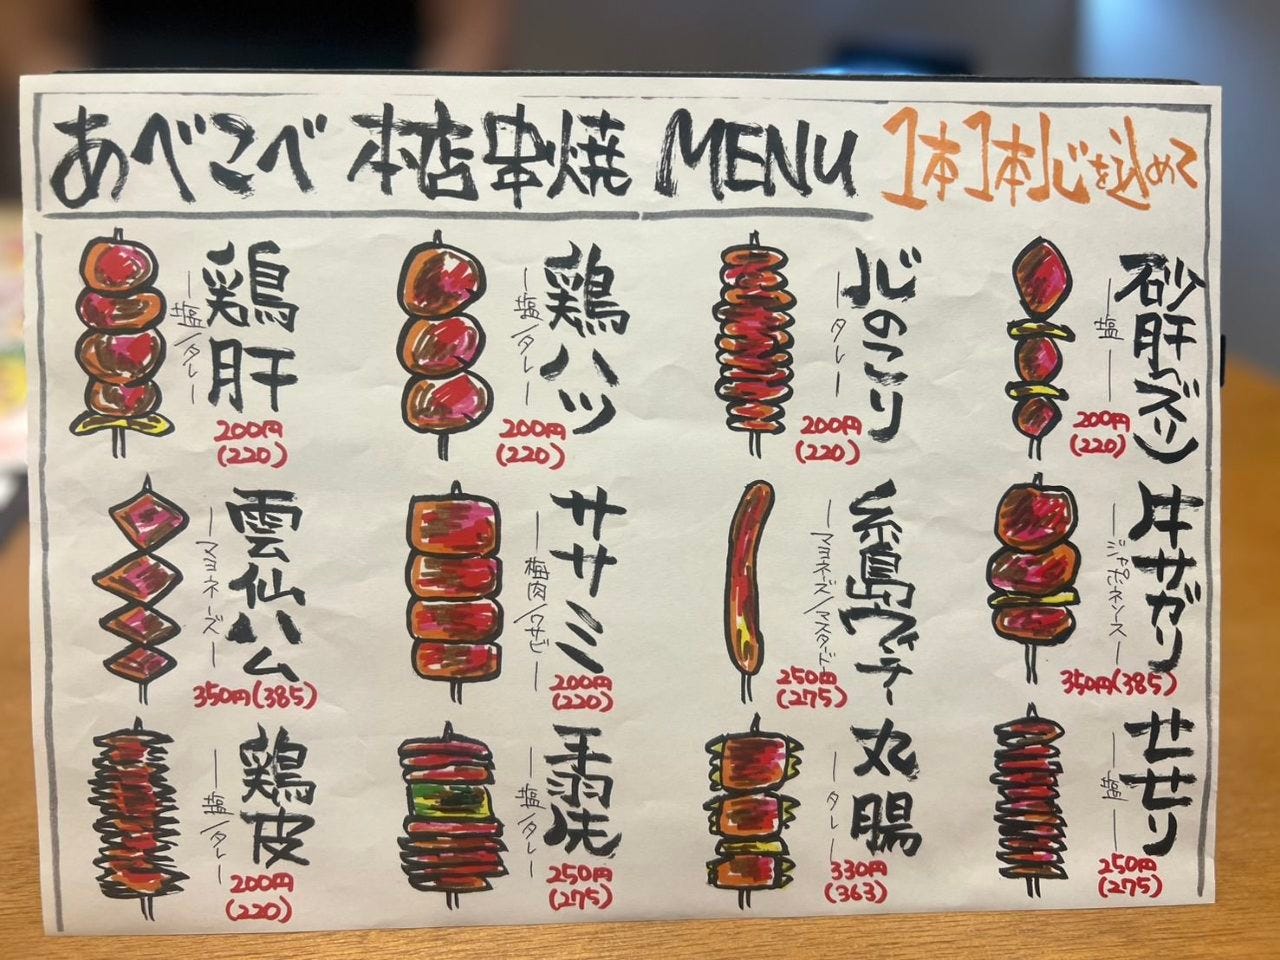 あべこべ 本店串焼 MENU 1本1本心を込めて
鶏肝
塩/タレ
200円
(220)
鶏ハツ
塩/タレ
200円
(220)
心のこり
タレ
200円
(220)
砂肝(ズリ)
塩
200円
(220)
雲仙ハム
マヨネーズ
350円(385)
ササミ
梅肉/ワサビ
200円
(220)
糸島
マヨネーズ/マスタード
250円
(275)
牛サガリ
350円(385)
鶏皮
塩/タレ
200円
(220)
手羽先
塩/タレ
250円
(275)
丸腸
タレ
330円
(363)
せせり
塩
250円
(275)